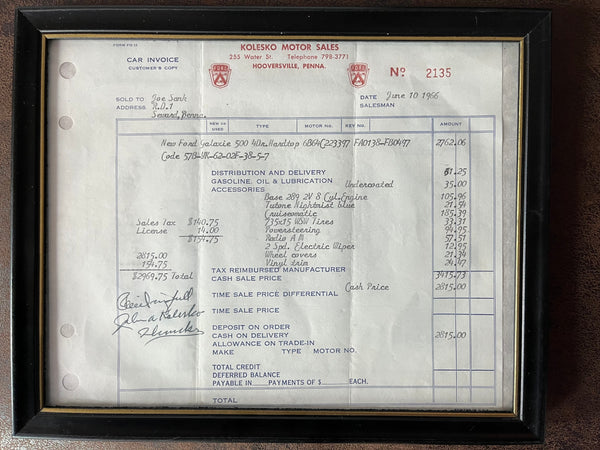 FORM FD-12
CAR INVOICE
CUSTOMER'S COPY
KOLESKO MOTOR SALES
255 Water St. Telephone 798-3771
HOOVERSVILLE, PENNA.
FORD FORD
No 2135
SOLD TO Joe Sank
ADDRESS R.D.1
Seward, Penna.
DATE June 10 1966
SALESMAN
NEW OR USED TYPE MOTOR NO. KEY NO. AMOUNT
New Ford Galaxie 500 4Dr. Hardtop 6B64C223397 FA0138-FB0497 2762.06
Code 57B-YK-62-02F-38-5-7
DISTRIBUTION AND DELIVERY 61.25
GASOLINE, OIL & LUBRICATION
ACCESSORIES Undercoated 35.00
Base 289 2V 8 Cyl. Engine 105.96
Tutone Nightmist blue 21.94
Cruiseomatic 185.39
Sales Tax $140.75 735x15 WSW Tires 33.31
License 14.00 Powersteering 94.95
$154.75 Radio A M 57.51
2 Spd. Electric Wiper 12.95
2815.00 Wheel covers 21.34
154.75 Vinyl trim 24.47
TAX REIMBURSED MANUFACTURER 3415.73
$2969.75 Total CASH SALE PRICE
Cash Price 2815.00
TIME SALE PRICE DIFFERENTIAL
TIME SALE PRICE
DEPOSIT ON ORDER
CASH ON DELIVERY 2815.00
ALLOWANCE ON TRADE-IN
MAKE TYPE MOTOR NO.
TOTAL CREDIT
DEFERRED BALANCE
PAYABLE IN____PAYMENTS OF $____EACH.
TOTAL